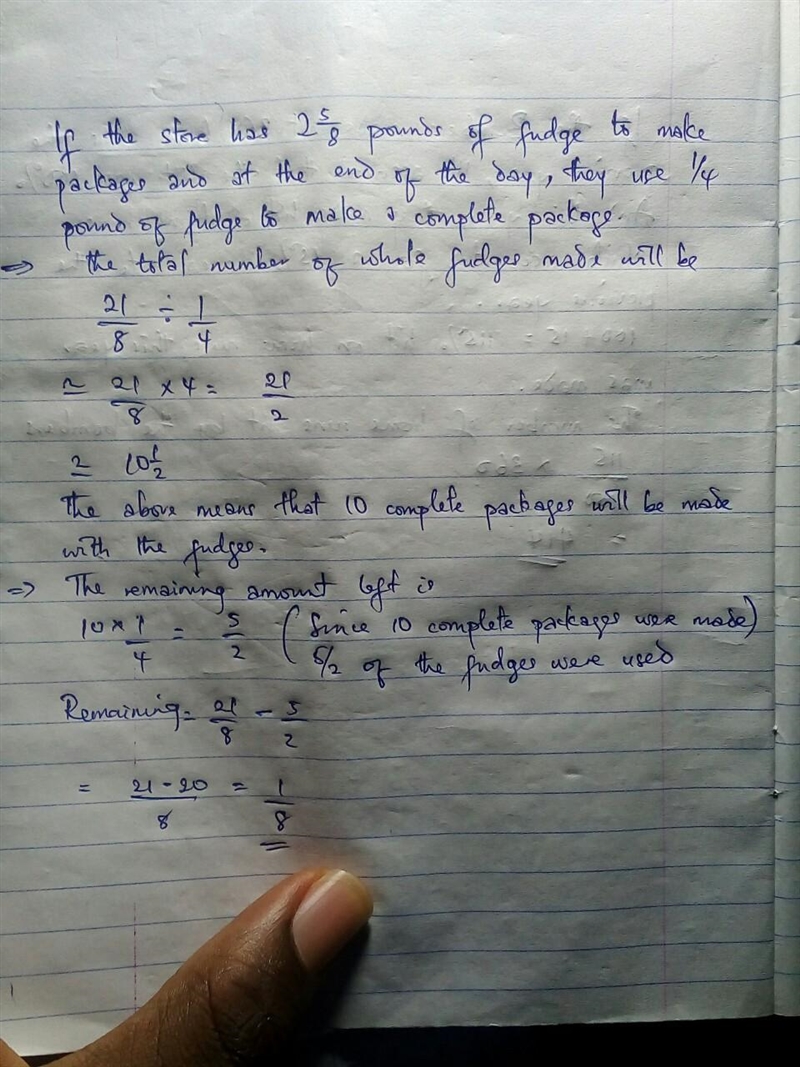 If the store has 2 5/8 pounds of fudge to make
packages and at the end of the day, they use 1/4
pound of fudge to make a complete package.
⇒ the total number of whole fudges made will be
21/8 ÷ 1/4
≃ 21/8 × 4 = 21/2
≃ 10 1/2
The above means that 10 complete packages will be made
with the fudges.
⇒ The remaining amount left is
10 × 1/4 = 5/2 (Since 10 complete packages were made)
5/2 of the fudges were used
Remaining = 21/8 - 5/2
= 21 - 20/8 = 1/8